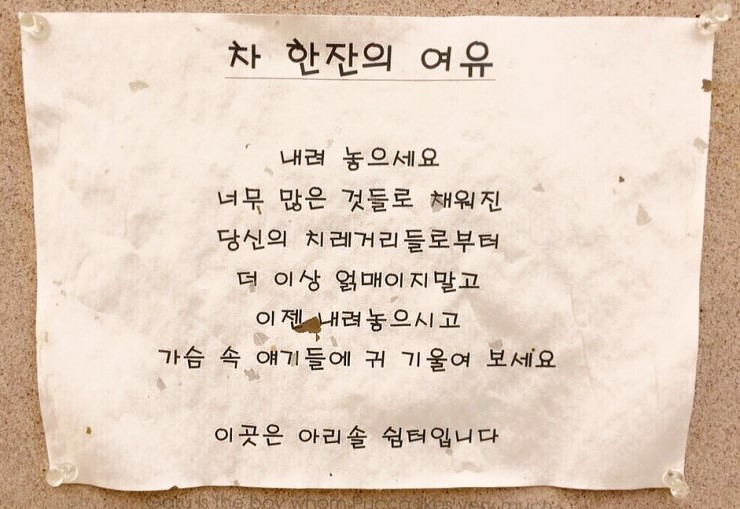 차 한잔의 여유
내려 놓으세요
너무 많은 것들로 채워진
당신의 치레거리들로부터
더 이상 얽매이지말고
이젠 내려놓으시고
가슴 속 얘기들에 귀 기울여 보세요
이곳은 아리솔 쉼터입니다
Garu is the boy whom Pucca likes very much